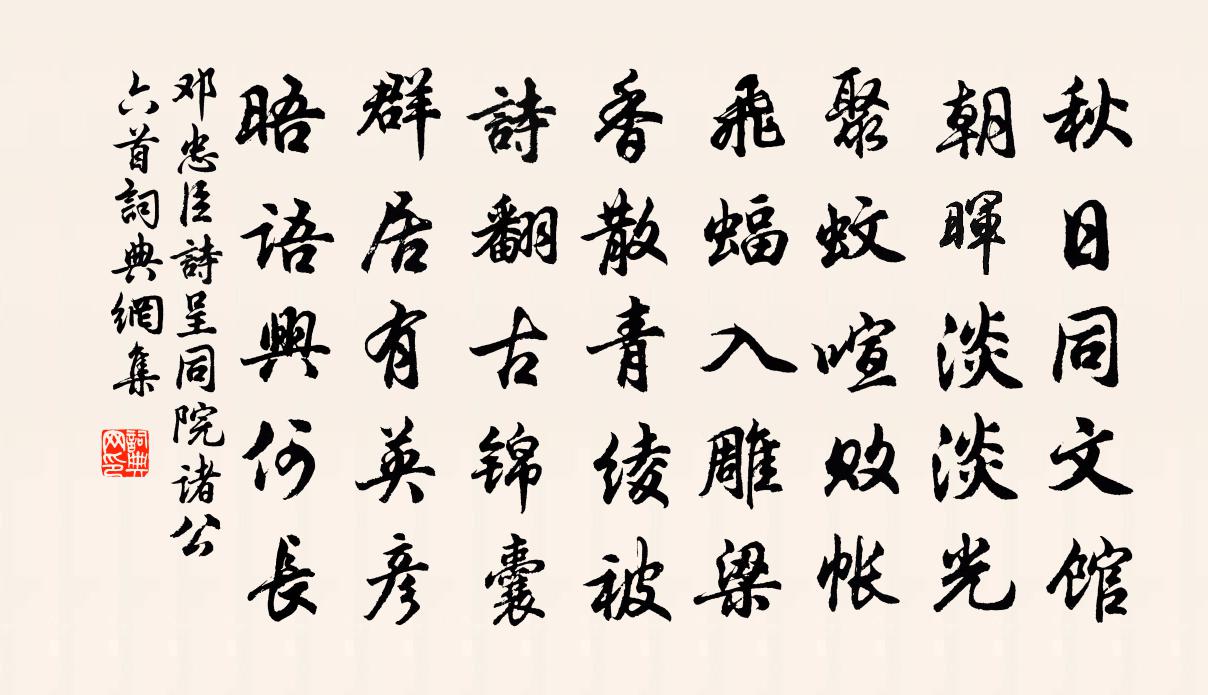 秋日同文馆
朝暉淡淡光
聚蚊喧败帐
飛蝠入雕梁
香散青绫被
詩翻古锦囊
群居有英彦
晤語興何長
邓忠臣詩呈同院诸公
六首詞典網集
詞典
网印